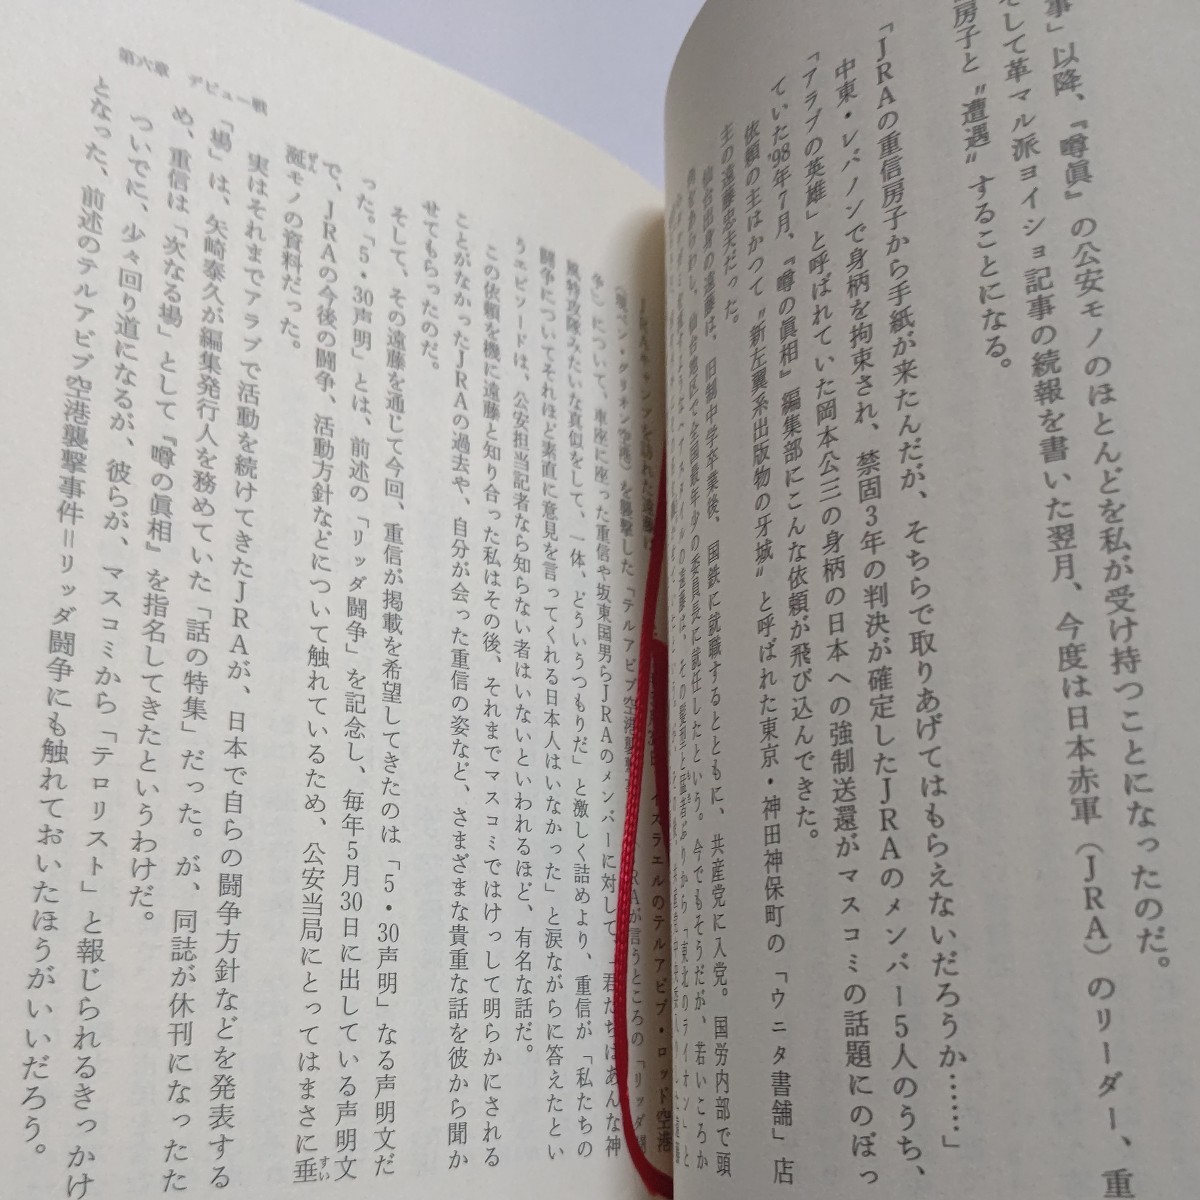 事」以降、『噂眞』の公安モノのほとんどを私が受け持つことになったのだ。
そして革マル派ヨイショ記事の続報を書いた翌月、今度は日本赤軍（JRA）のリーダー、重
房子と〝遭遇〟することになる。
「JRAの重信房子から手紙が来たんだが、そちらで取りあげてはもらえないだろうか……」
中東・レバノンで身柄を拘束され、禁固3年の判決が確定したJRAのメンバー5人のうち、
「アラブの英雄」と呼ばれていた岡本公三の身柄の日本への強制送還がマスコミの話題にのぼっ
ていた'98年7月、『噂の眞相』編集部にこんな依頼が飛び込んできた。
依頼の主はかつて〝新左翼系出版物の牙城〟と呼ばれた東京・神田神保町の「ウニタ書舗」店
主の遠藤忠夫だった。
仙台出身の遠藤は、旧制中学卒業後、国鉄に就職するとともに、共産党に入党。国労内部で頭
角をあらわし、仙台地区で全国最年少の委員長に就任したという。今でもそうだが、若いころか
第六章　デビュー戦
（現ベン・グリオン空港）を襲撃した「テルアビブ空港襲撃
争」について、車座に座った重信や坂東国男らJRAのメンバーに対して、「君たちはあんな神
風特攻隊みたいな真似をして、一体、どういうつもりだ」と激しく詰めより、重信が「私たちの
闘争についてそれほど素直に意見を言ってくれる日本人はいなかった」と涙ながらに答えたとい
うエピソードは、公安担当記者なら知らない者はいないといわれるほど、有名な話だ。
この依頼を機に遠藤と知り合った私はその後、それまでマスコミではけっして明らかにされる
ことがなかったJRAの過去や、自分が会った重信の姿など、さまざまな貴重な話を彼から聞か
せてもらったのだ。
そして、その遠藤を通じて今回、重信が掲載を希望してきたのは「5・30声明」なる声明文だ
った。「5・30声明」とは、前述の「リッダ闘争」を記念し、毎年5月30日に出している声明文
で、JRAの今後の闘争、活動方針などについて触れているため、公安当局にとってはまさに垂
涎モノの資料だった。
実はそれまでアラブで活動を続けてきたJRAが、日本で自らの闘争方針などを発表する
「場」は、矢崎泰久が編集発行人を務めていた「話の特集」だった。が、同誌が休刊になったた
め、重信は「次なる場」として『噂の眞相』を指名してきたというわけだ。
ついでに、少々回り道になるが、彼らが、マスコミから「テロリスト」と報じられるきっかけ
となった、前述のテルアビブ空港襲撃事件＝リッダ闘争にも触れておいたほうがいいだろう。